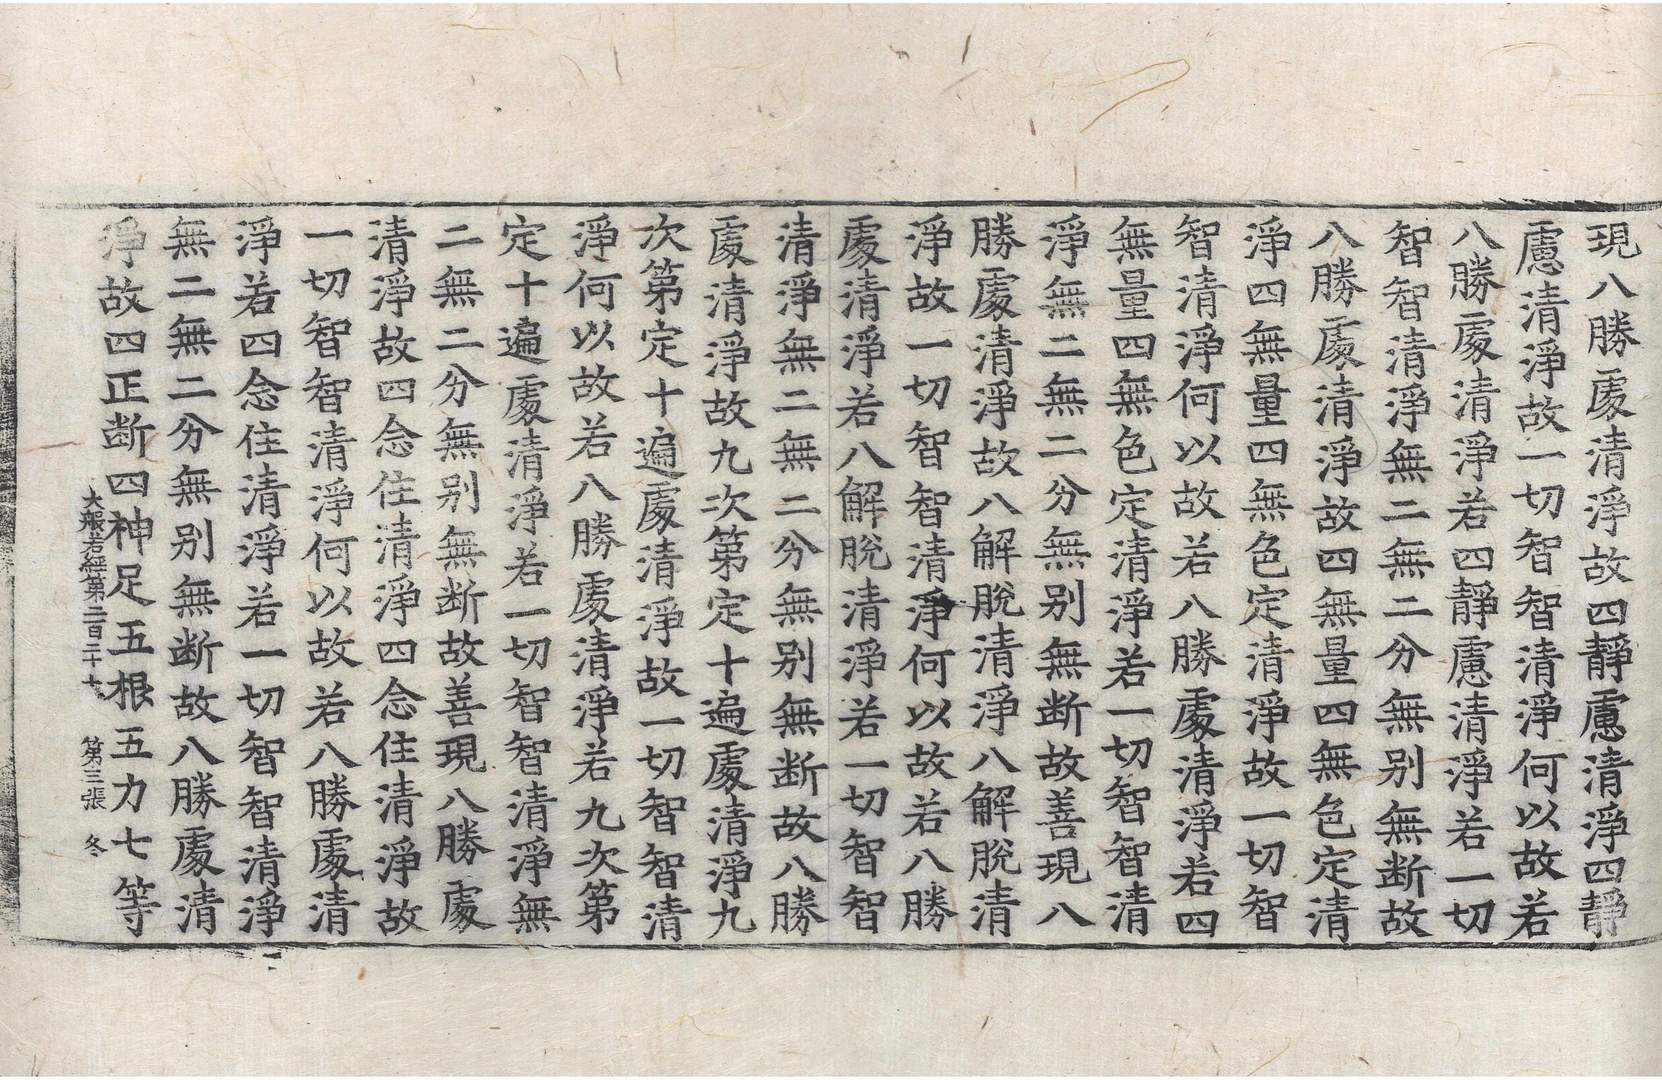 現八勝處清淨故四靜慮清淨四靜
慮清淨故一切智智清淨何以故若
八勝處清淨若四靜慮清淨若一切
智智清淨無二無二分無別無断故
八勝處清淨故四無量四無色定清
淨四無量四無色定清淨故一切智
智清淨何以故若八勝處清淨若四
無量四無色定清淨若一切智智清
淨無二無二分無别無断故善現八
勝處清淨故八解脫清淨八解脫清
淨故一切智智清淨何以故若八勝
處清淨若八解脫清淨若一切智智
清淨無二無二分無别無断故八勝
處清淨故九次第定十遍處清淨九
次第定十遍處清淨故一切智智清
淨何以故若八勝處清淨若九次第
定十遍處清淨若一切智智清淨無
二無二分無别無断故善現八勝處
清淨故四念住清淨四念住清淨故
一切智智清淨何以故若八勝處清
淨若四念住清淨若一切智智清淨
無二無二分無别無断故八勝處清
淨故四正断四神足五根五力七等
大般若經第二百二十七 第三張 冬